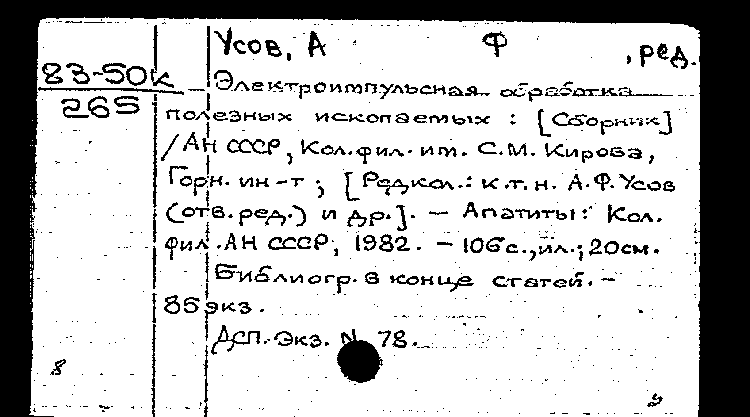 Усов, А Ф , ред.
83-50к
265
Электроимпульсная обработка
полезных ископаемых : [Сборник]
/АН СССР, Кол. фил. им. С.М. Кирова,
Горн. ин-т ; [Редкол.: к.т.н. А.Ф. Усов
(отв. ред.) и др.]. - Апатиты: Кол.
фил. АН СССР, 1982. - 106 с., ил.; 20 см.
Библиогр. в конце статей. -
85 экз.
ДСП. Экз. N 78.
8